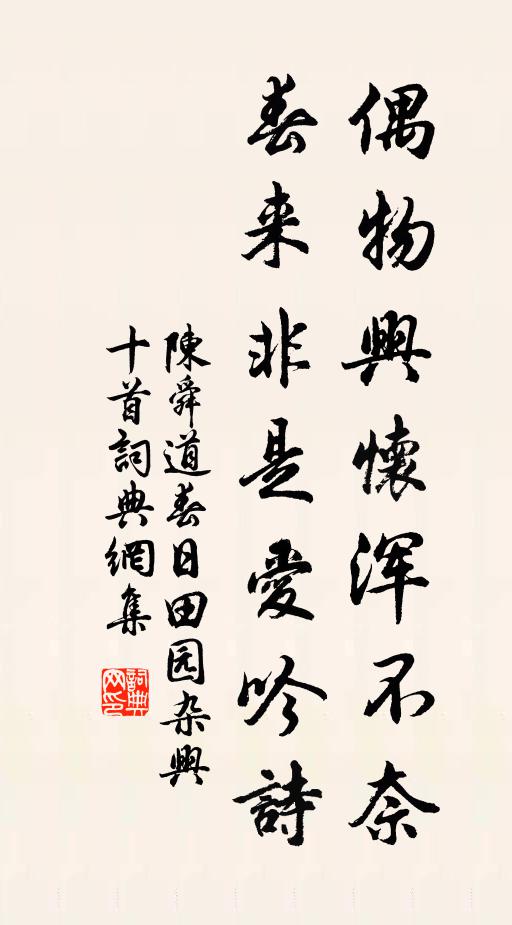 偶物興懷浑不奈
春来非是愛吟詩
陳舜道春日田园杂興
十首詞典網集
詞典网印